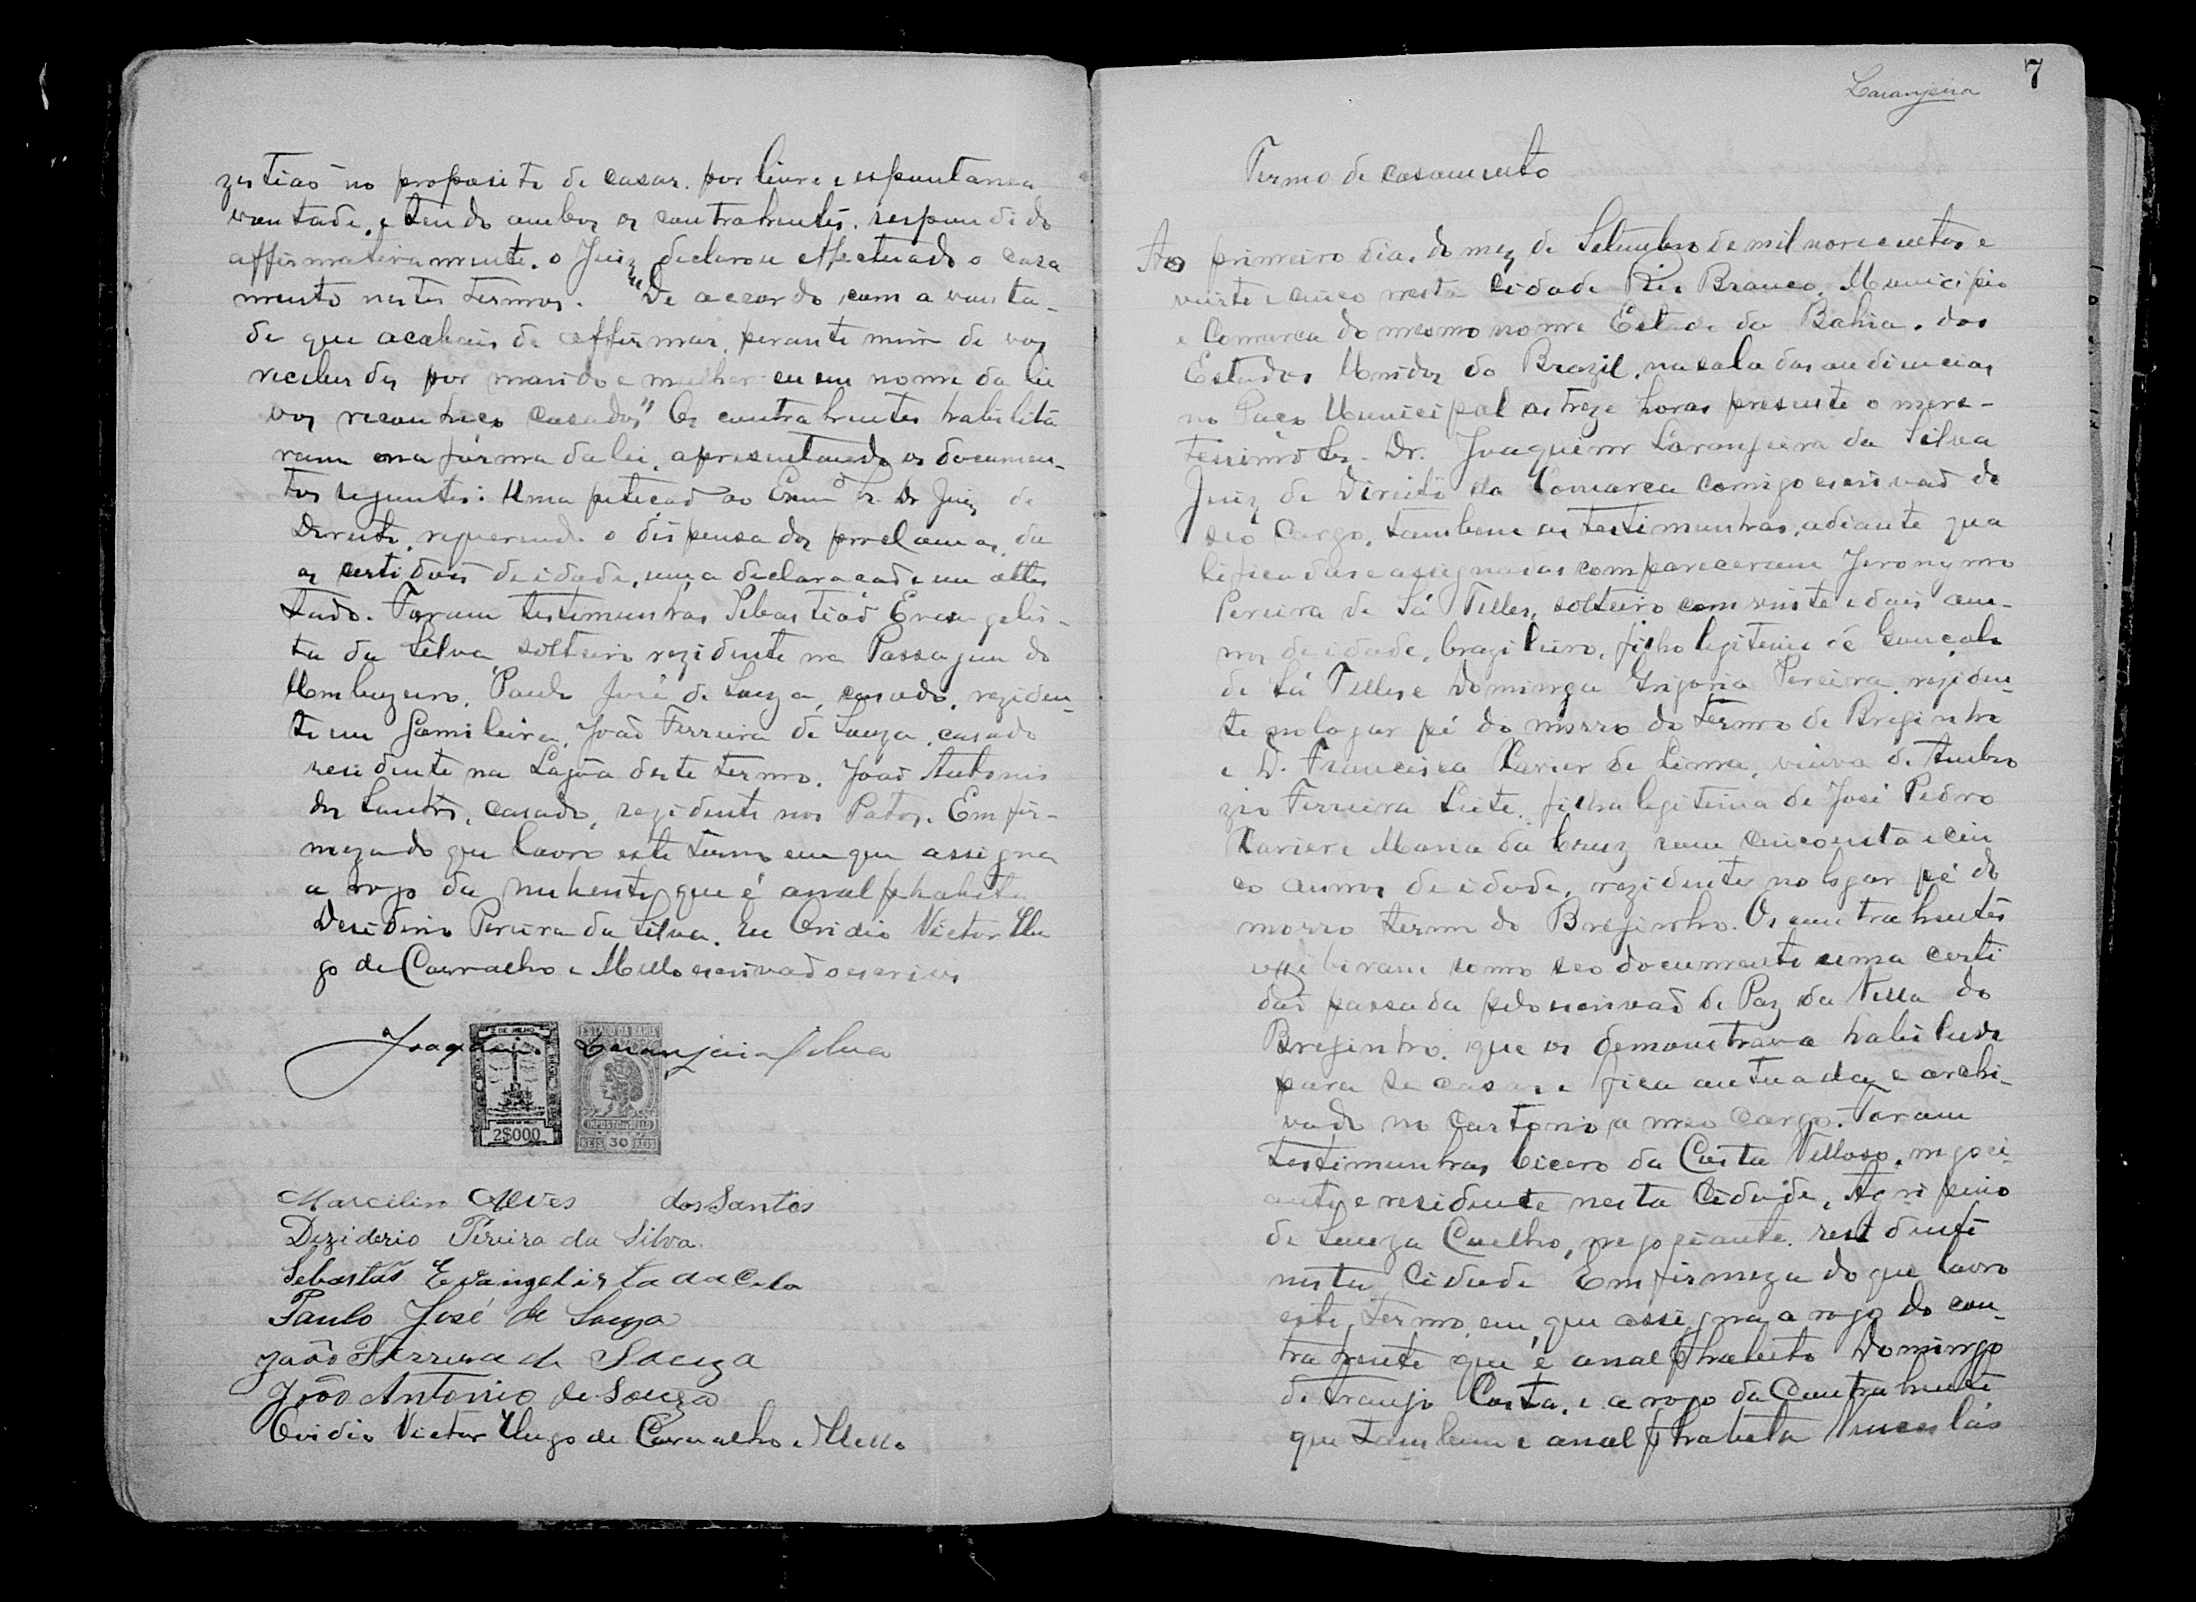 zistião no proposito de casar por livre e espontanea
vontade, e tendo ambos os contrahentes respondido
affirmativamente, o Juiz declarou effectuado o casa
mento nestes termos. "De accordo com a vonta-
de que acabais de affirmar, perante mim de vos
receberdes por marido e mulher eu em nome da lei
vos reconheço casados" Os contrahentes habilita
ram na fórma da lei, apresentando os documen-
tos seguintes: Uma petição ao Exmo Sr. Dr. Juiz de
Direito, requerendo o dispensa dos proclamas, du
as certidões de idade, uma declaração e um attes
tado. Foram testimunhas Sebastião Evangelis-
ta da Silva, solteiro rezidente na Passagem do
Umbuzeiro, Paulo José de Souza, casado, reziden-
te em Gamileira, João Ferreira de Souza, casado
residente na Lagôa deste termo, João Antonio
dos Santos, casado, rezidente nos Patos. Em fir-
meza do que lavro este termo em que assigna
a rogo da nubente que é analphabeta
Desiderio Pereira da Silva. Eu Ovidio Victor Hu
go de Carvalho e Mello escrivão escrevi
Joaquim Laranjeira Silva
2 DE JULHO
2$000
ESTADO DA BAHIA
IMPOSTO DO SELLO
REIS 30 REIS
Marcelino Alves dos Santos
Deziderio Pereira da Silva
Sebastião Evangelista da Celo
Paulo José de Souza
João Ferreira de Souza
João Antonio de Souza
Ovidio Victor Hugo de Carvalho e Mello
Laranjeira
7
Termo de casamento
Aos primeiro dia, do mez de Setembro de mil novecentos e
vinte e cinco nesta Cidade Rio Branco, Municipio
e Comarca do mesmo nome Estado da Bahia, dos
Estados Unidos do Brazil, na sala das audiencias
no Paço Municipal as treze horas presente o mere-
tissimo Sr. Dr. Joaquim Laranjeira da Silva
Juiz de Direito da Comarca comigo escrivão de
seo Cargo, tambem as testimunhas, adiante qua
lificadas e assignadas compareceram Jeronymo
Pereira de Sá Telles, solteiro com vinte e dois an-
nos de idade, brazileiro, filho legitimo de Gonçalo
de Sá Telles e Dominga Grigoria Pereira, reziden-
te no logar pé do morro do Termo de Brejinho
e D. Francisca Xavier de Lima, viuva de Ambro
zio Ferreira Leite, filha legitima de José Pedro
Xavier e Maria da Cruz com cincoenta e cin
co annos de idade, rezidente no logar pé do
morro termo do Brejinho. Os contrahentes
exxibiram como seo documento uma certi
dão passada pelo escrivão de Paz da Villa do
Brejinho, que os demonstrava habilitado
para se casar e fica autuada e archi-
vado no Cartorio a meo Cargo. Foram
testimunhas Cicero da Costa Velloso, negoci-
ante e residente nesta Cidade, Agripino
de Souza Coelho, negociante, residente
nesta Cidade Em firmeza do que lavro
este termo, em que assigna a rogo do con-
trahente que é analphabeto Domingo
de Araujo Costa, e a rogo da Contrahente
que tambem é analphabeta Vencesláo